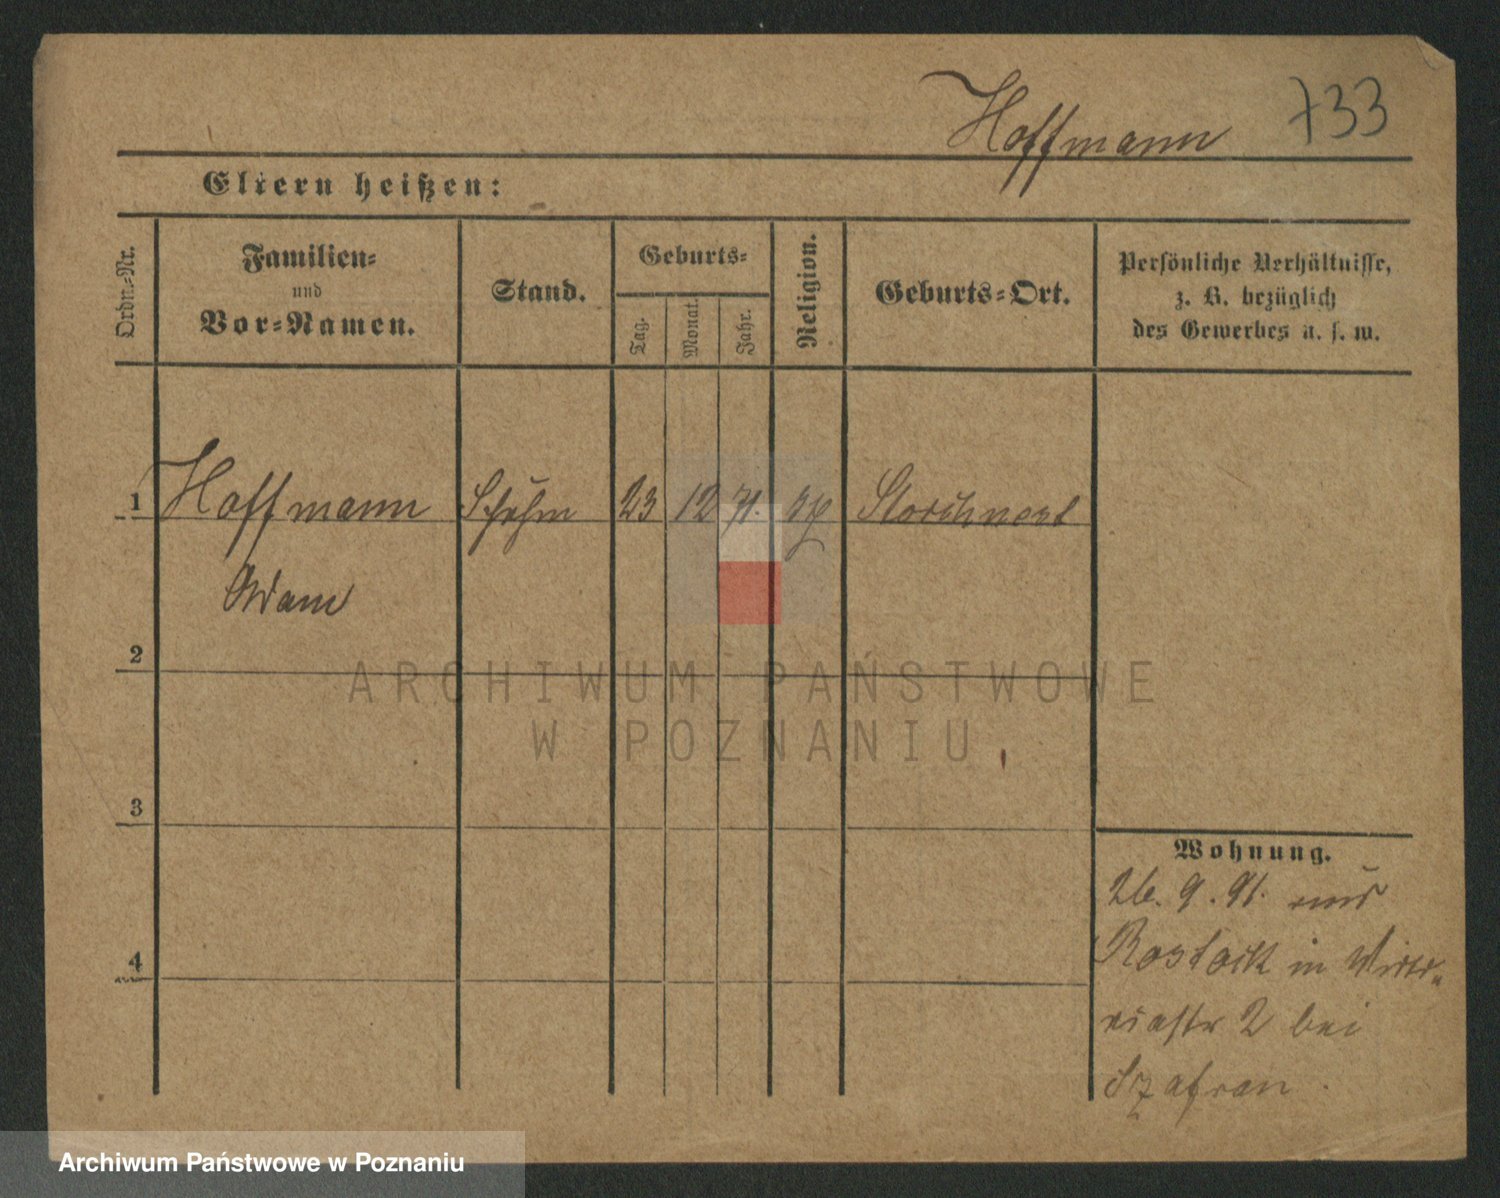 Hoffmann 733
Eltern heißen:
Ordn.-Nr.
Familien-
und
Vor-Namen.
Stand.
Geburts-
Tag.
Monat.
Jahr.
Religion.
Geburts-Ort.
Persönliche Verhältnisse,
z. B. bezüglich
des Gewerbes u. s. w.
1 Hoffmann 23 12 71. Storchnest
Adam
2
ARCHIWUM PAŃSTWOWE
W POZNANIU
3
Wohnung.
26. 9. 91. aus
4
Rostock in
2 bei
Szafran
Archiwum Państwowe w Poznaniu